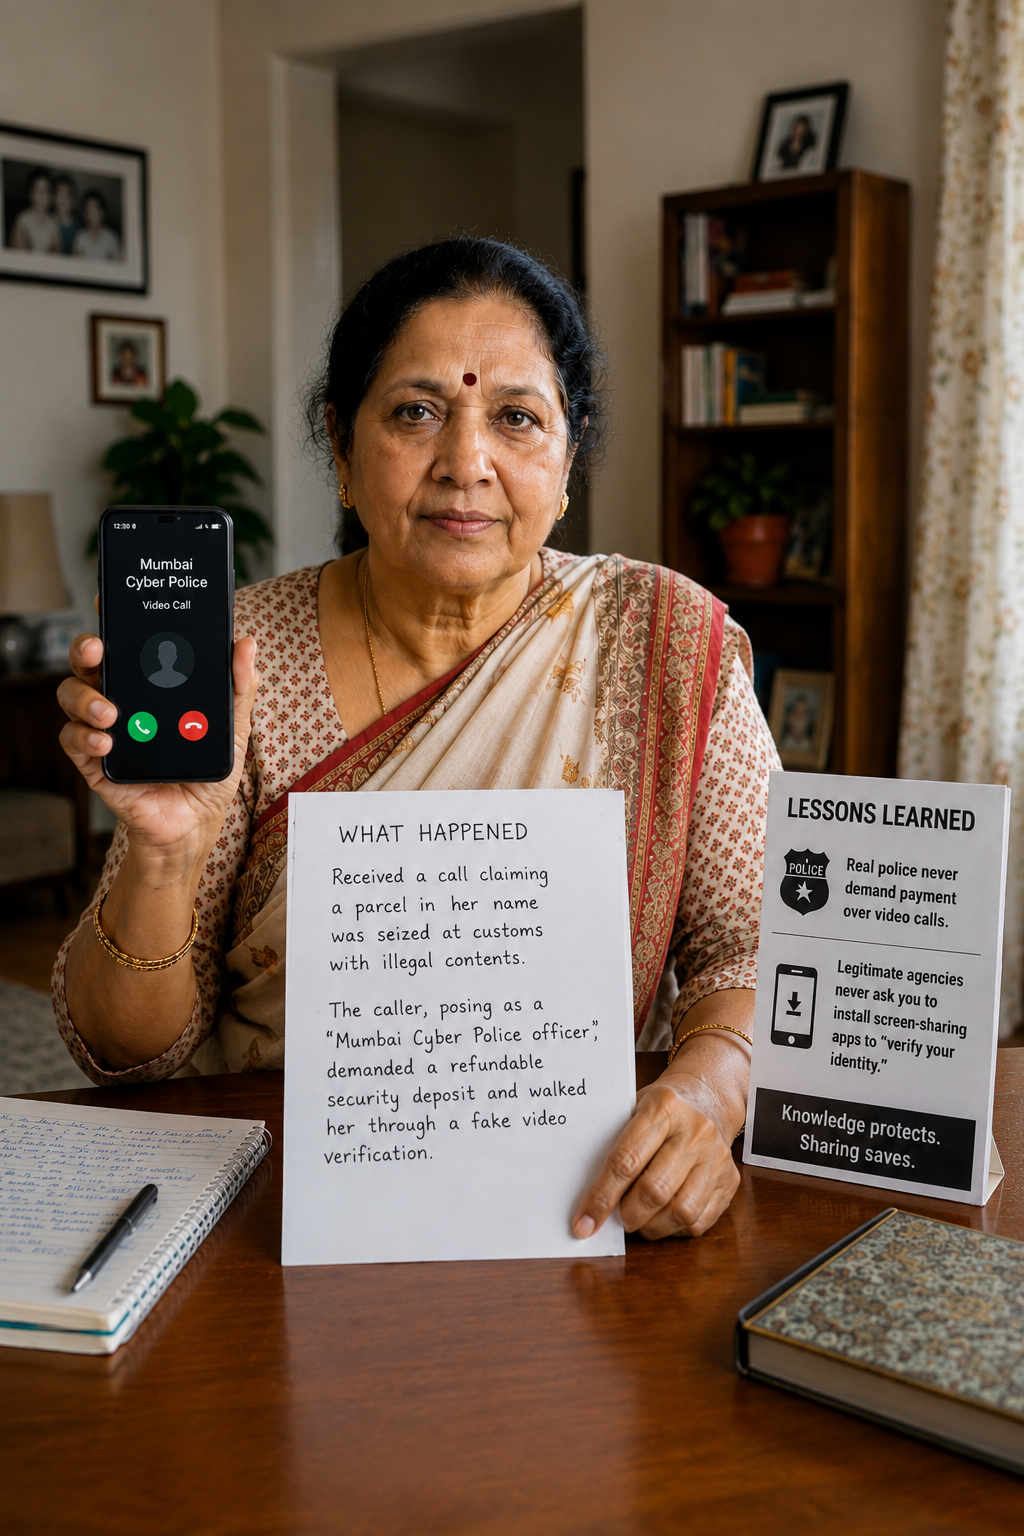 12:30
Mumbai
Cyber Police
Video Call
WHAT HAPPENED
Received a call claiming
a parcel in her name
was seized at customs
with illegal contents.
The caller, posing as a
“Mumbai Cyber Police officer”,
demanded a refundable
security deposit and walked
her through a fake video
verification.
LESSONS LEARNED
POLICE
Real police never
demand payment
over video calls.
Legitimate agencies
never ask you to
install screen-sharing
apps to “verify your
identity.”
Knowledge protects.
Sharing saves.